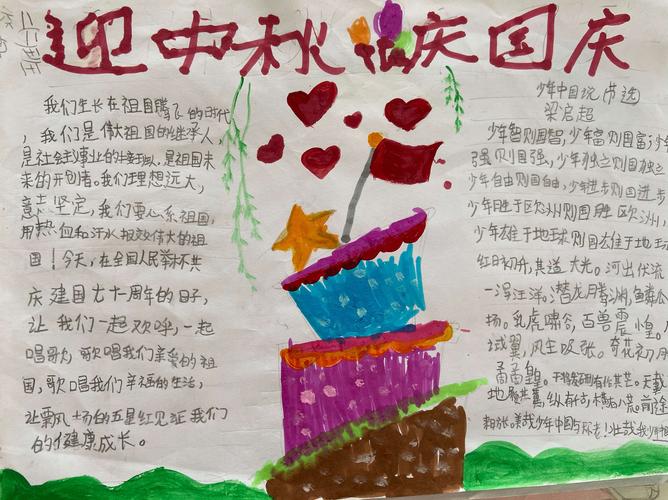 迎中秋 庆国庆
我们生长在祖国腾飞的时代
，我们是伟大祖国的继承人
是社会主义事业的接班人，是祖国未
来的开创者。我们理想远大，
意志坚定，我们要心系祖国，
用热血和汗水报效伟大的祖
国！今天，在全国人民举杯共
庆建国七十一周年的日子，
让我们一起欢呼，一起
唱歌，歌唱我们亲爱的祖
国，歌唱我们幸福的生活，
让飘扬的五星红见证我们
的健康成长。
少年中国说(节选
梁启超
少年智则国智，少年富则国富；少年
强则国强，少年独立则国独立
少年自由则国自由，少年进步则国进步
少年胜于欧洲则国胜欧洲，
少年雄于地球则国雄于地球
红日初升，其道大光。河出伏流
一泻汪洋。潜龙腾渊，鳞
扬。乳虎啸谷，百兽震惶。
翼，风尘吸张。奇花初
矞矞皇皇。干将发硎有作其芒。天戴
地履其黄，纵有千古横有八荒。前途
来日方长。美哉少年中国与天不老！壮哉我少年中国